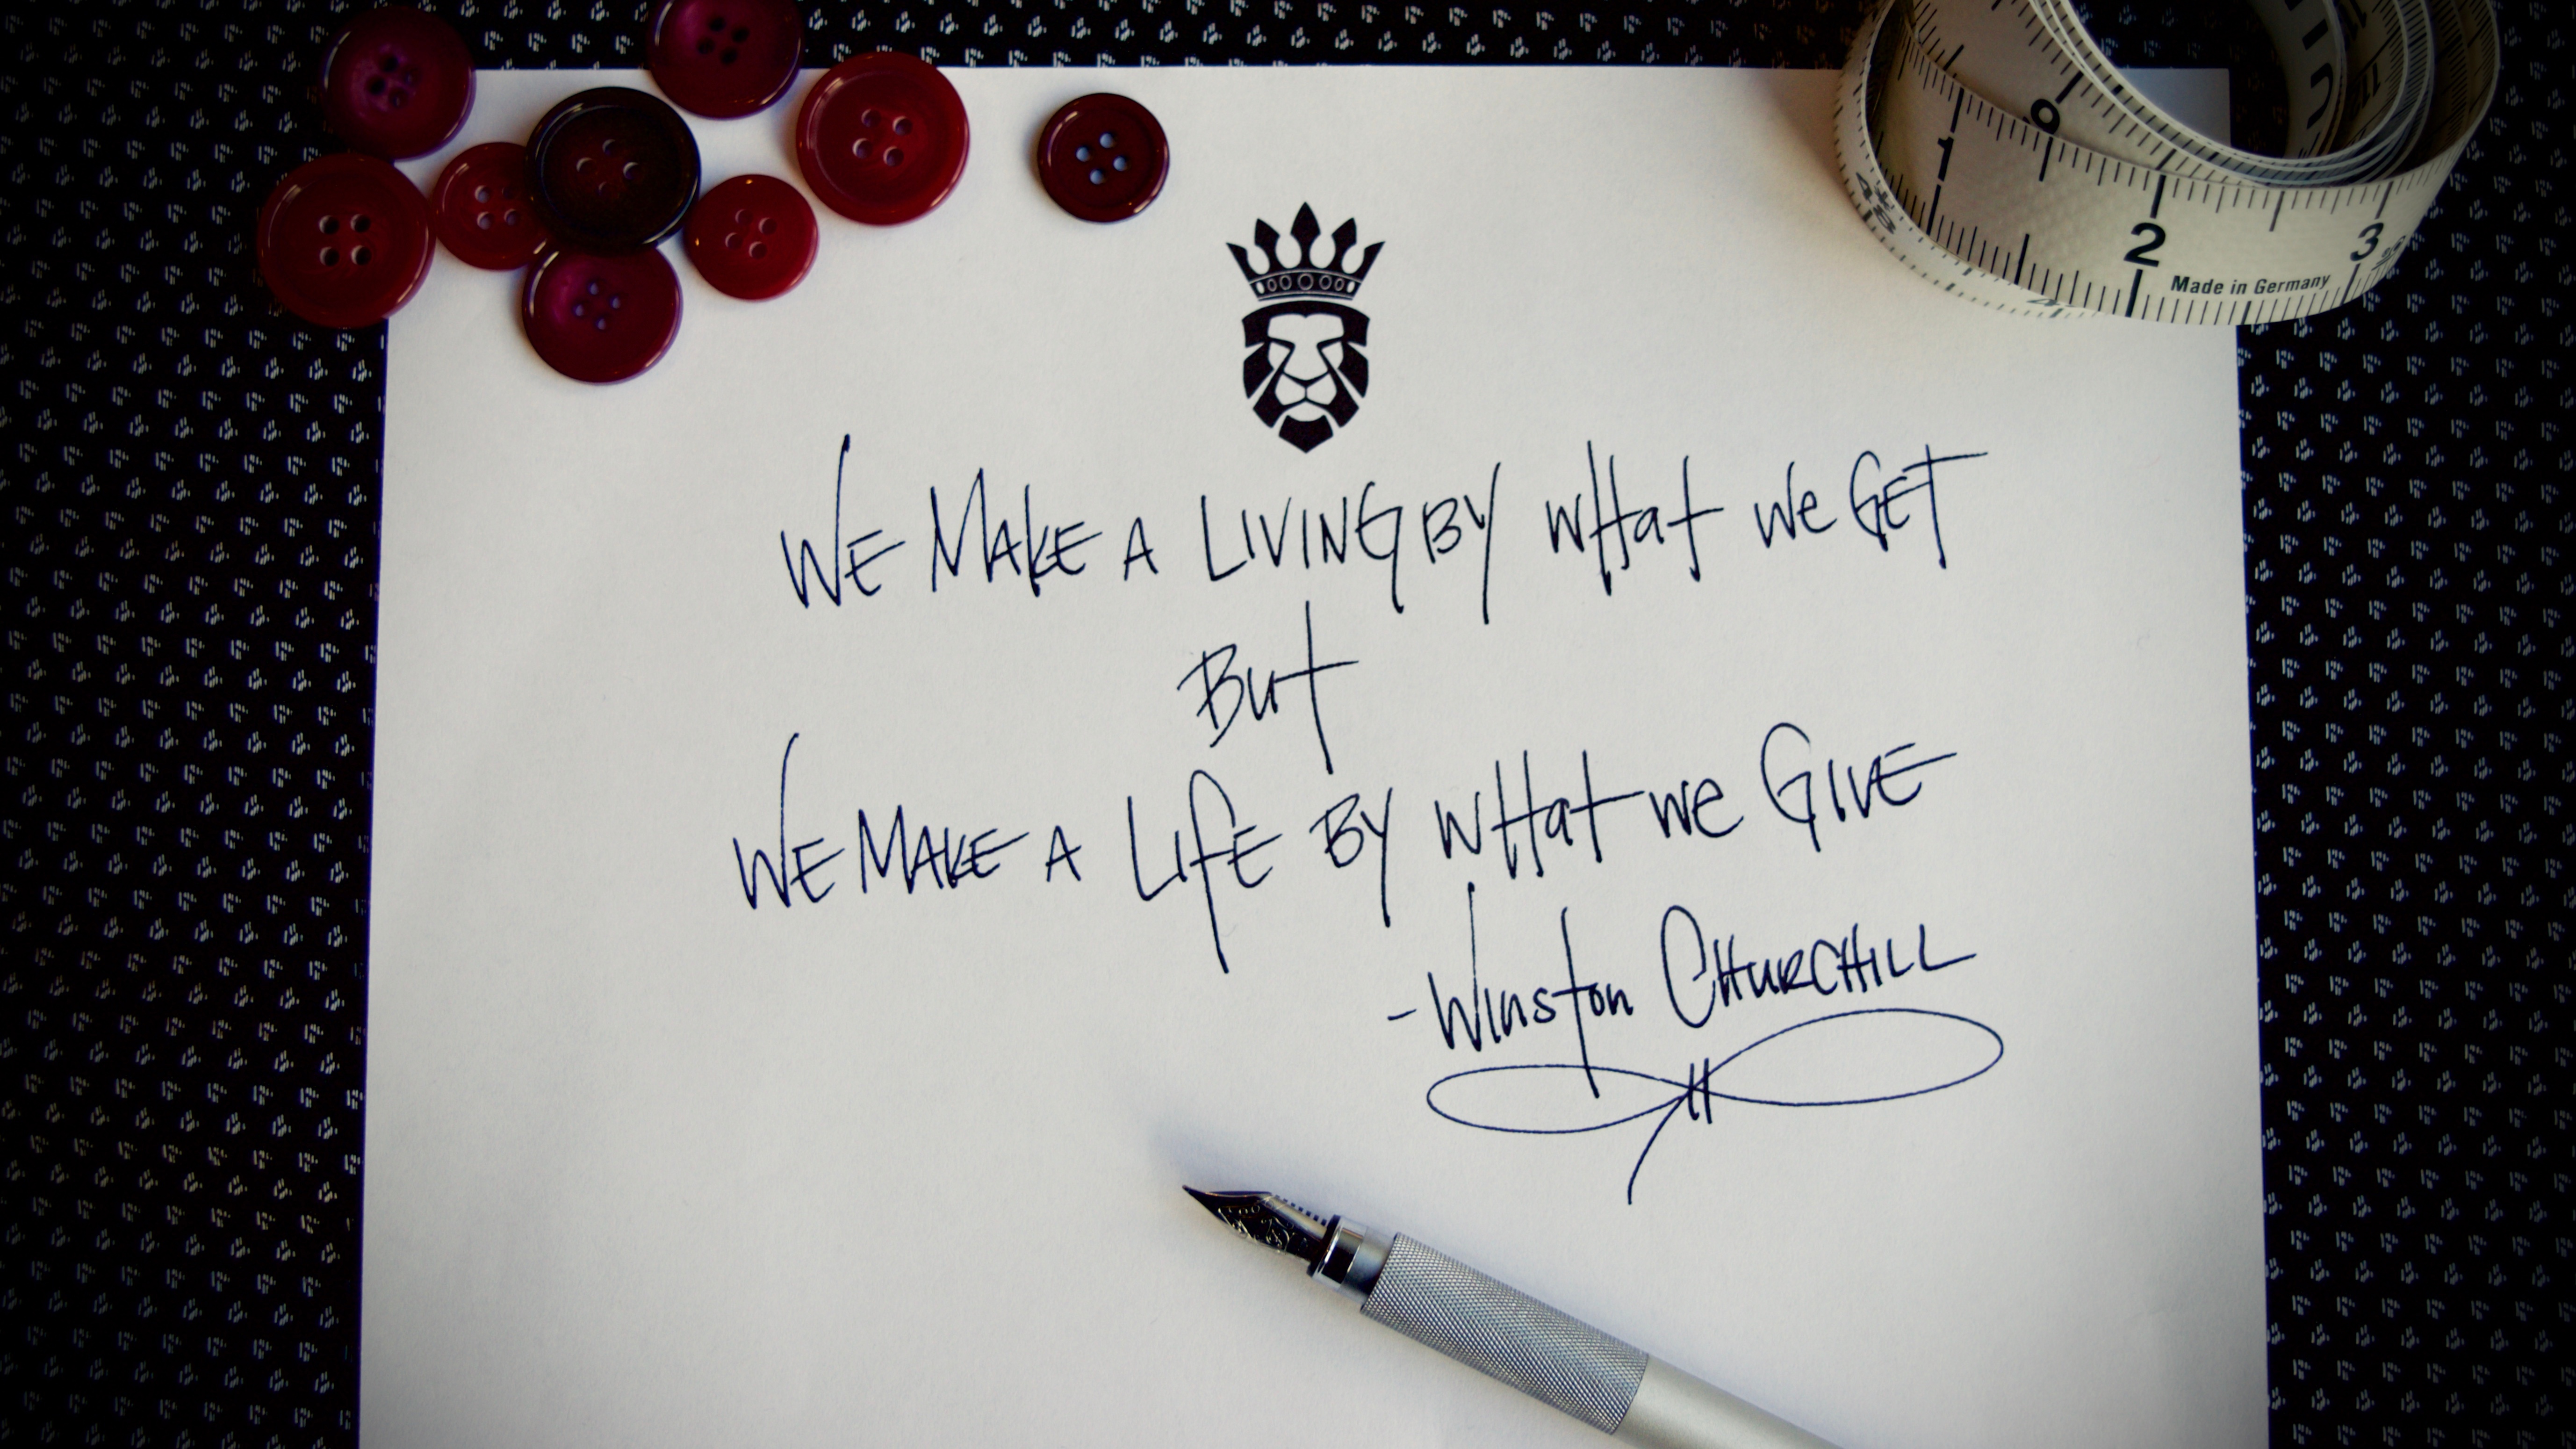 1 2 3
9
45
Made in Germany
We Make A Living By What We Get
But
We Make A Life By What We Give
- Winston Churchill